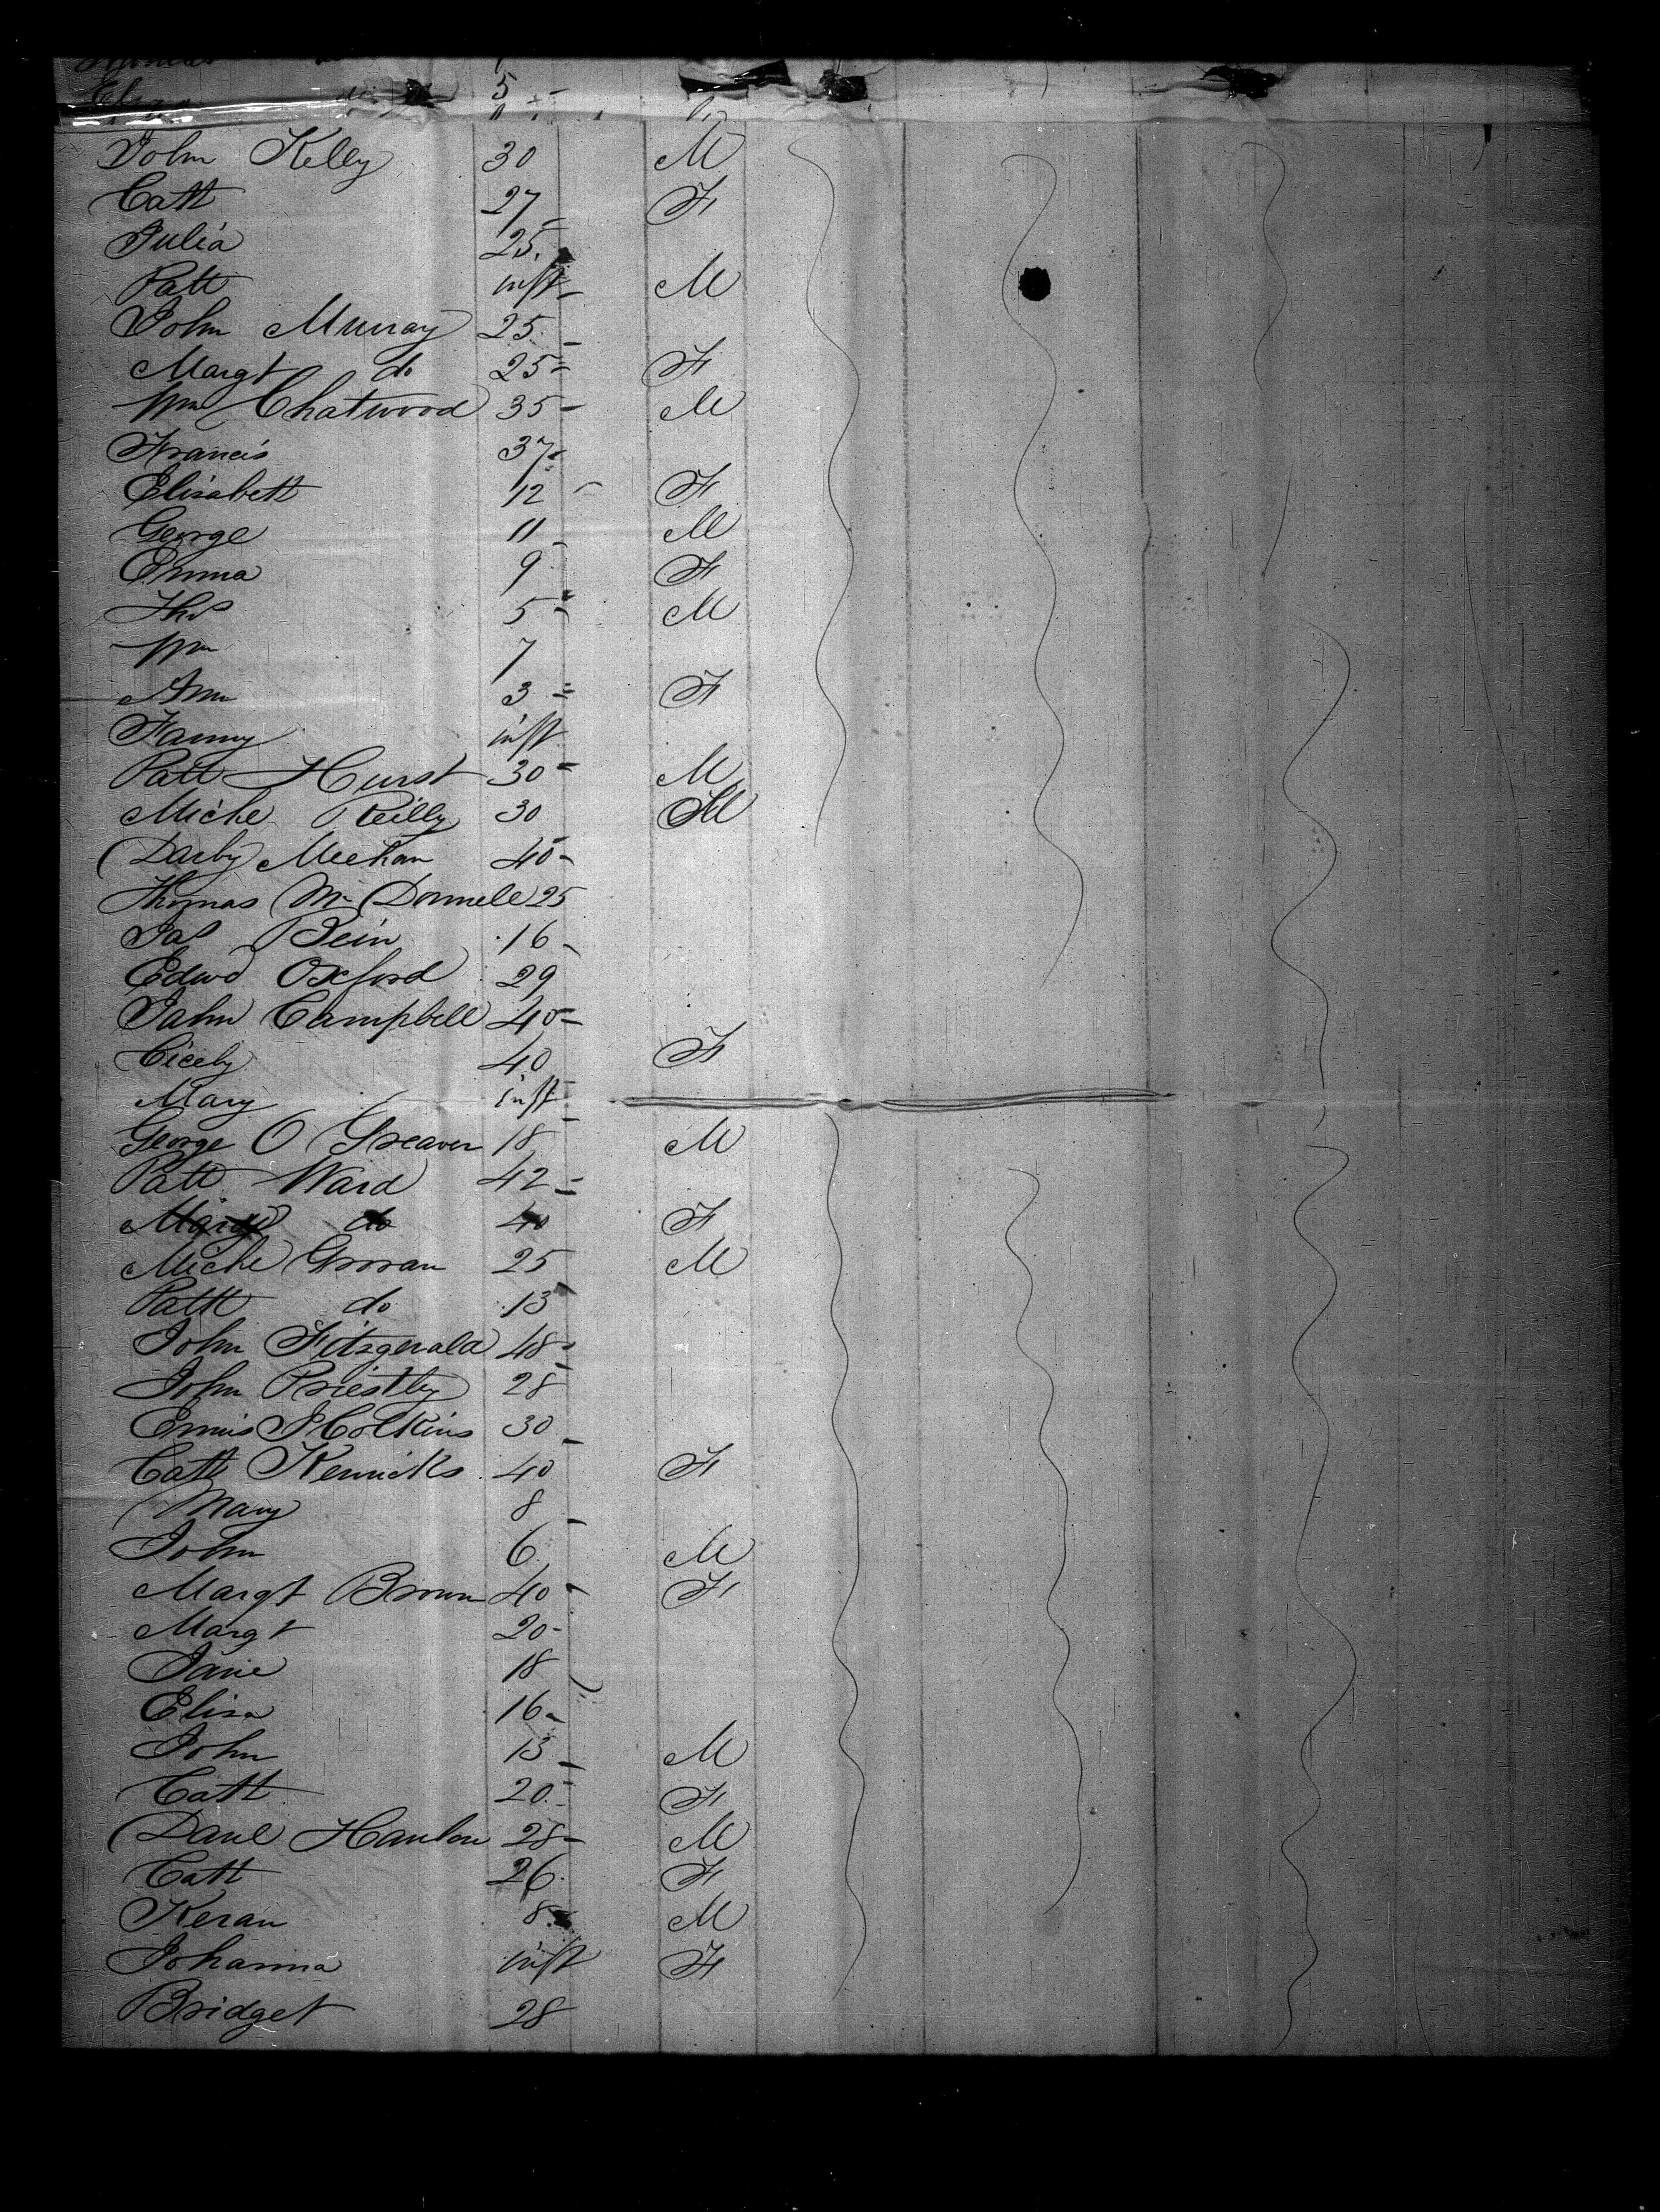 Eliza do 5
John Kelly 30 M
Cath 27 F
Julia 25
Patt inft M
John Murray 25
Margt do 25 F
Wm Chatwood 35 M
Francis 37
Elisabeth 12 F
George 11 M
Emma 9 F
Thos 5 M
Wm 7
Ann 3 F
Fanny inft
Patt Hurst 30 M
Michl Reilly 30 M
Darby Meehan 40
Thomas Mc Donnell 25
Jas Bein 16
Edwd Oxford 29
John Campbell 40
Cicely 40 F
Mary inft
George O Greaven 18 M
Patt Ward 42
Margt do 40 F
Michl Groran 25 M
Patk do 13
John Fitzgerald 48
John Priestley 28
30
Cath Kenricks 40 F
Mary 8
John 6 M
Margt Brown 40 F
Margt 20
Jane 18
Eliza 16
John 13 M
Cath 20 F
Danl Hanlon 28 M
Cath 26 F
Keran 8 M
Johanna inft F
Bridget 28